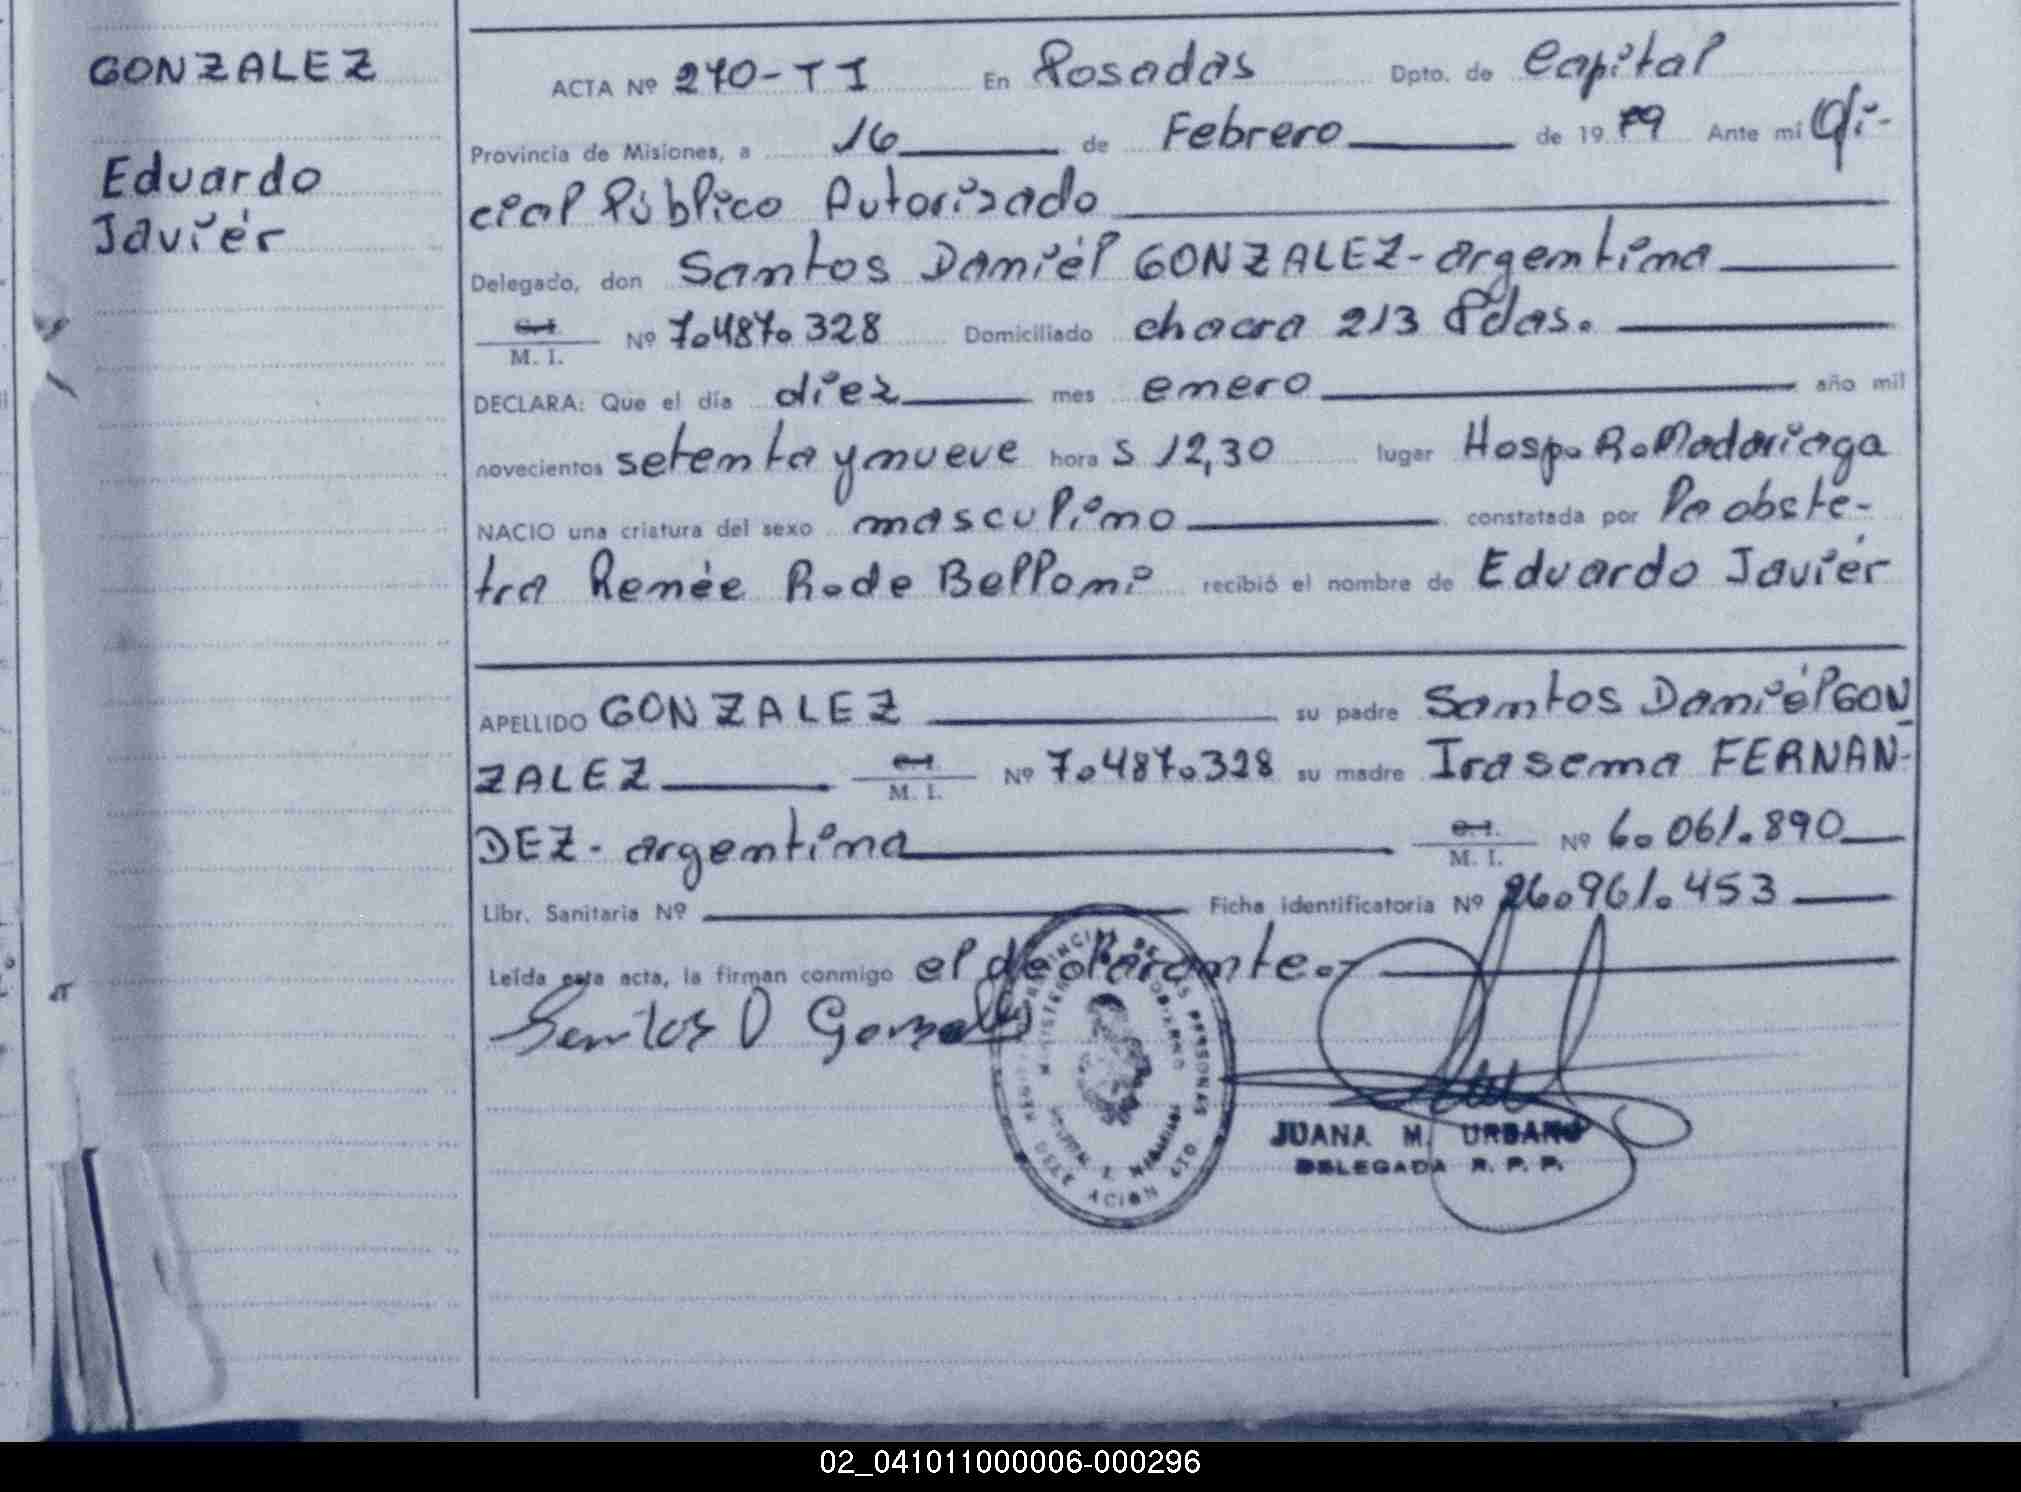 GONZALEZ
Eduardo
Javiér
ACTA Nº 270-TI En Posadas Dpto. de Capital
Provincia de Misiones, a 16 de Febrero de 1979 Ante mi Ofi-
cial Público Autorizado
Delegado, don Santos Daniél GONZALEZ-argentina
C.I. M. I. Nº 7.487.328 Domiciliado chacra 213 Pdas.
DECLARA: Que el día diez mes enero año mil
novecientos setenta y nueve hora s 12,30 lugar Hosp. R. Madariaga
NACIO una criatura del sexo masculino constatada por la obste-
tra Renée R. de Belloni recibió el nombre de Eduardo Javiér
APELLIDO GONZALEZ su padre Santos Daniél GON
ZALEZ C.I. M. I. Nº 7.487.328 su madre Irasema FERNAN-
DEZ- argentina C.I. M. I. Nº 6.061.890
Libr. Sanitaria Nº Ficha identificatoria Nº 26.961.453
Leída esta acta, la firman conmigo el declarante.-
Santos D Gonzalez
PROVINCIAL DE LAS PERSONAS
MINISTERIO GOBIERNO
DELEGACION
JUANA M. URBANO
DELEGADA R. P. P.
02_041011000006-000296